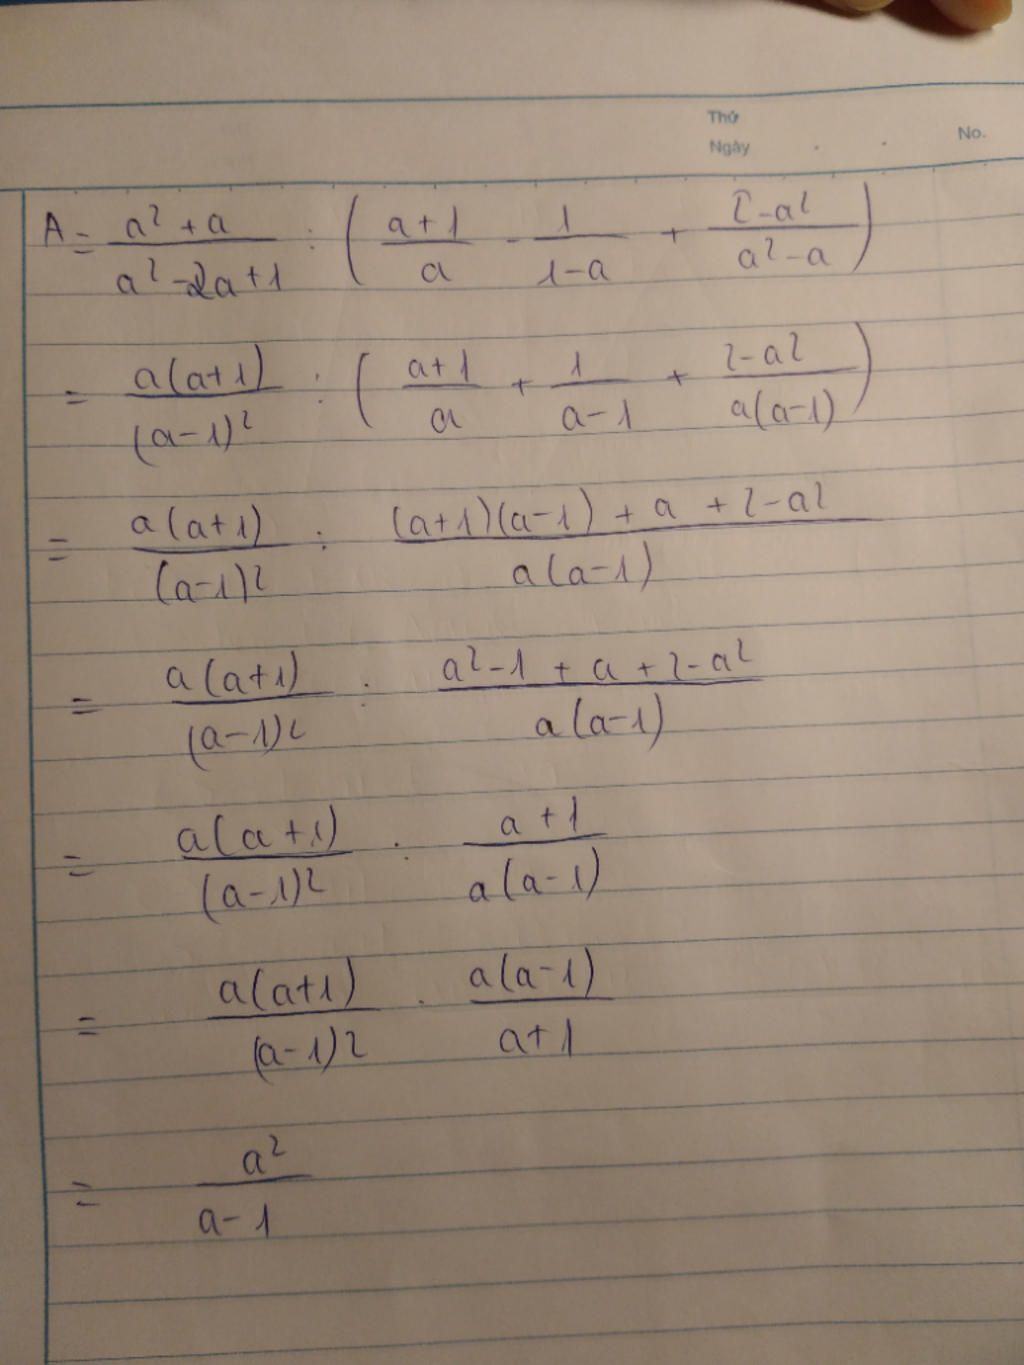 Thứ
Ngày . . No.
A = \frac{a^2 + a}{a^2 - 2a + 1} : \left( \frac{a+1}{a} - \frac{1}{1-a} + \frac{2-a^2}{a^2-a} \right)
= \frac{a(a+1)}{(a-1)^2} : \left( \frac{a+1}{a} + \frac{1}{a-1} + \frac{2-a^2}{a(a-1)} \right)
= \frac{a(a+1)}{(a-1)^2} : \frac{(a+1)(a-1) + a + 2 - a^2}{a(a-1)}
= \frac{a(a+1)}{(a-1)^2} : \frac{a^2 - 1 + a + 2 - a^2}{a(a-1)}
= \frac{a(a+1)}{(a-1)^2} : \frac{a+1}{a(a-1)}
= \frac{a(a+1)}{(a-1)^2} . \frac{a(a-1)}{a+1}
= \frac{a^2}{a-1}